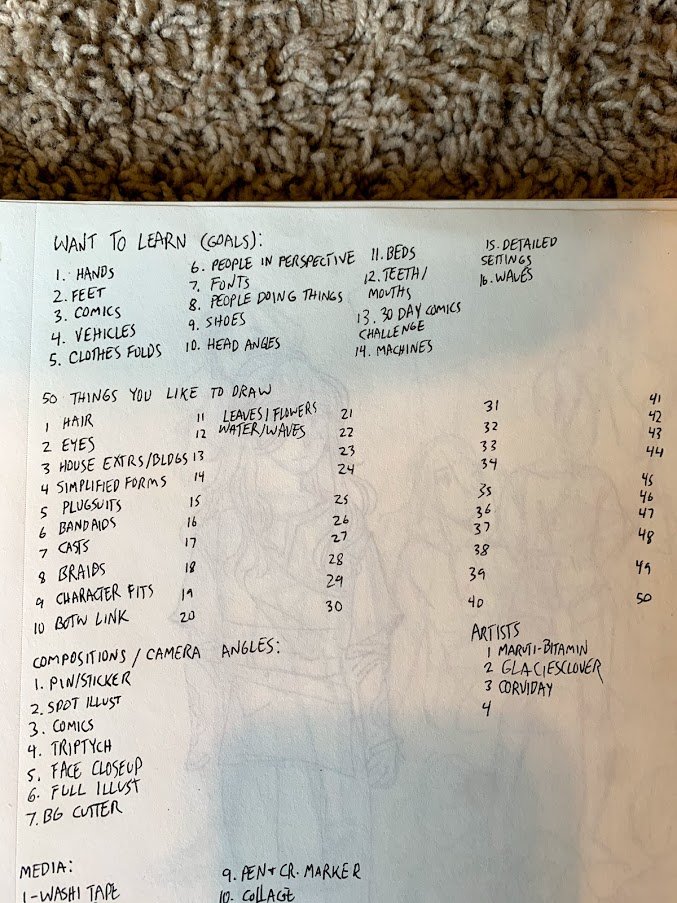 WANT TO LEARN (GOALS):
1. HANDS
2. FEET
3. COMICS
4. VEHICLES
5. CLOTHES FOLDS
6. PEOPLE IN PERSPECTIVE
7. FONTS
8. PEOPLE DOING THINGS
9. SHOES
10. HEAD ANGLES
11. BEDS
12. TEETH/
MOUTHS
13. 30 DAY COMICS
CHALLENGE
14. MACHINES
15. DETAILED
SETTINGS
16. WAVES
50 THINGS YOU LIKE TO DRAW
1 HAIR
2 EYES
3 HOUSE EXTRS/BLDGS
4 SIMPLIFIED FORMS
5 PLUGSUITS
6 BANDAIDS
7 CASTS
8 BRAIDS
9 CHARACTER FITS
10 BOTW LINK
11 LEAVES/FLOWERS
12 WATER/WAVES
13
14
15
16
17
18
19
20
21
22
23
24
25
26
27
28
29
30
31
32
33
34
35
36
37
38
39
40
41
42
43
44
45
46
47
48
49
50
COMPOSITIONS / CAMERA ANGLES:
1. PIN/STICKER
2. SPOT ILLUST
3. COMICS
4. TRIPTYCH
5. FACE CLOSEUP
6. FULL ILLUST
7. BG CUTTER
ARTISTS
1 MARUTI-BITAMIN
2 GLACIESCLOVER
3 CORVIDAY
4
MEDIA:
1-WASHI TAPE
9. PEN + CR. MARKER
10. COLLAGE